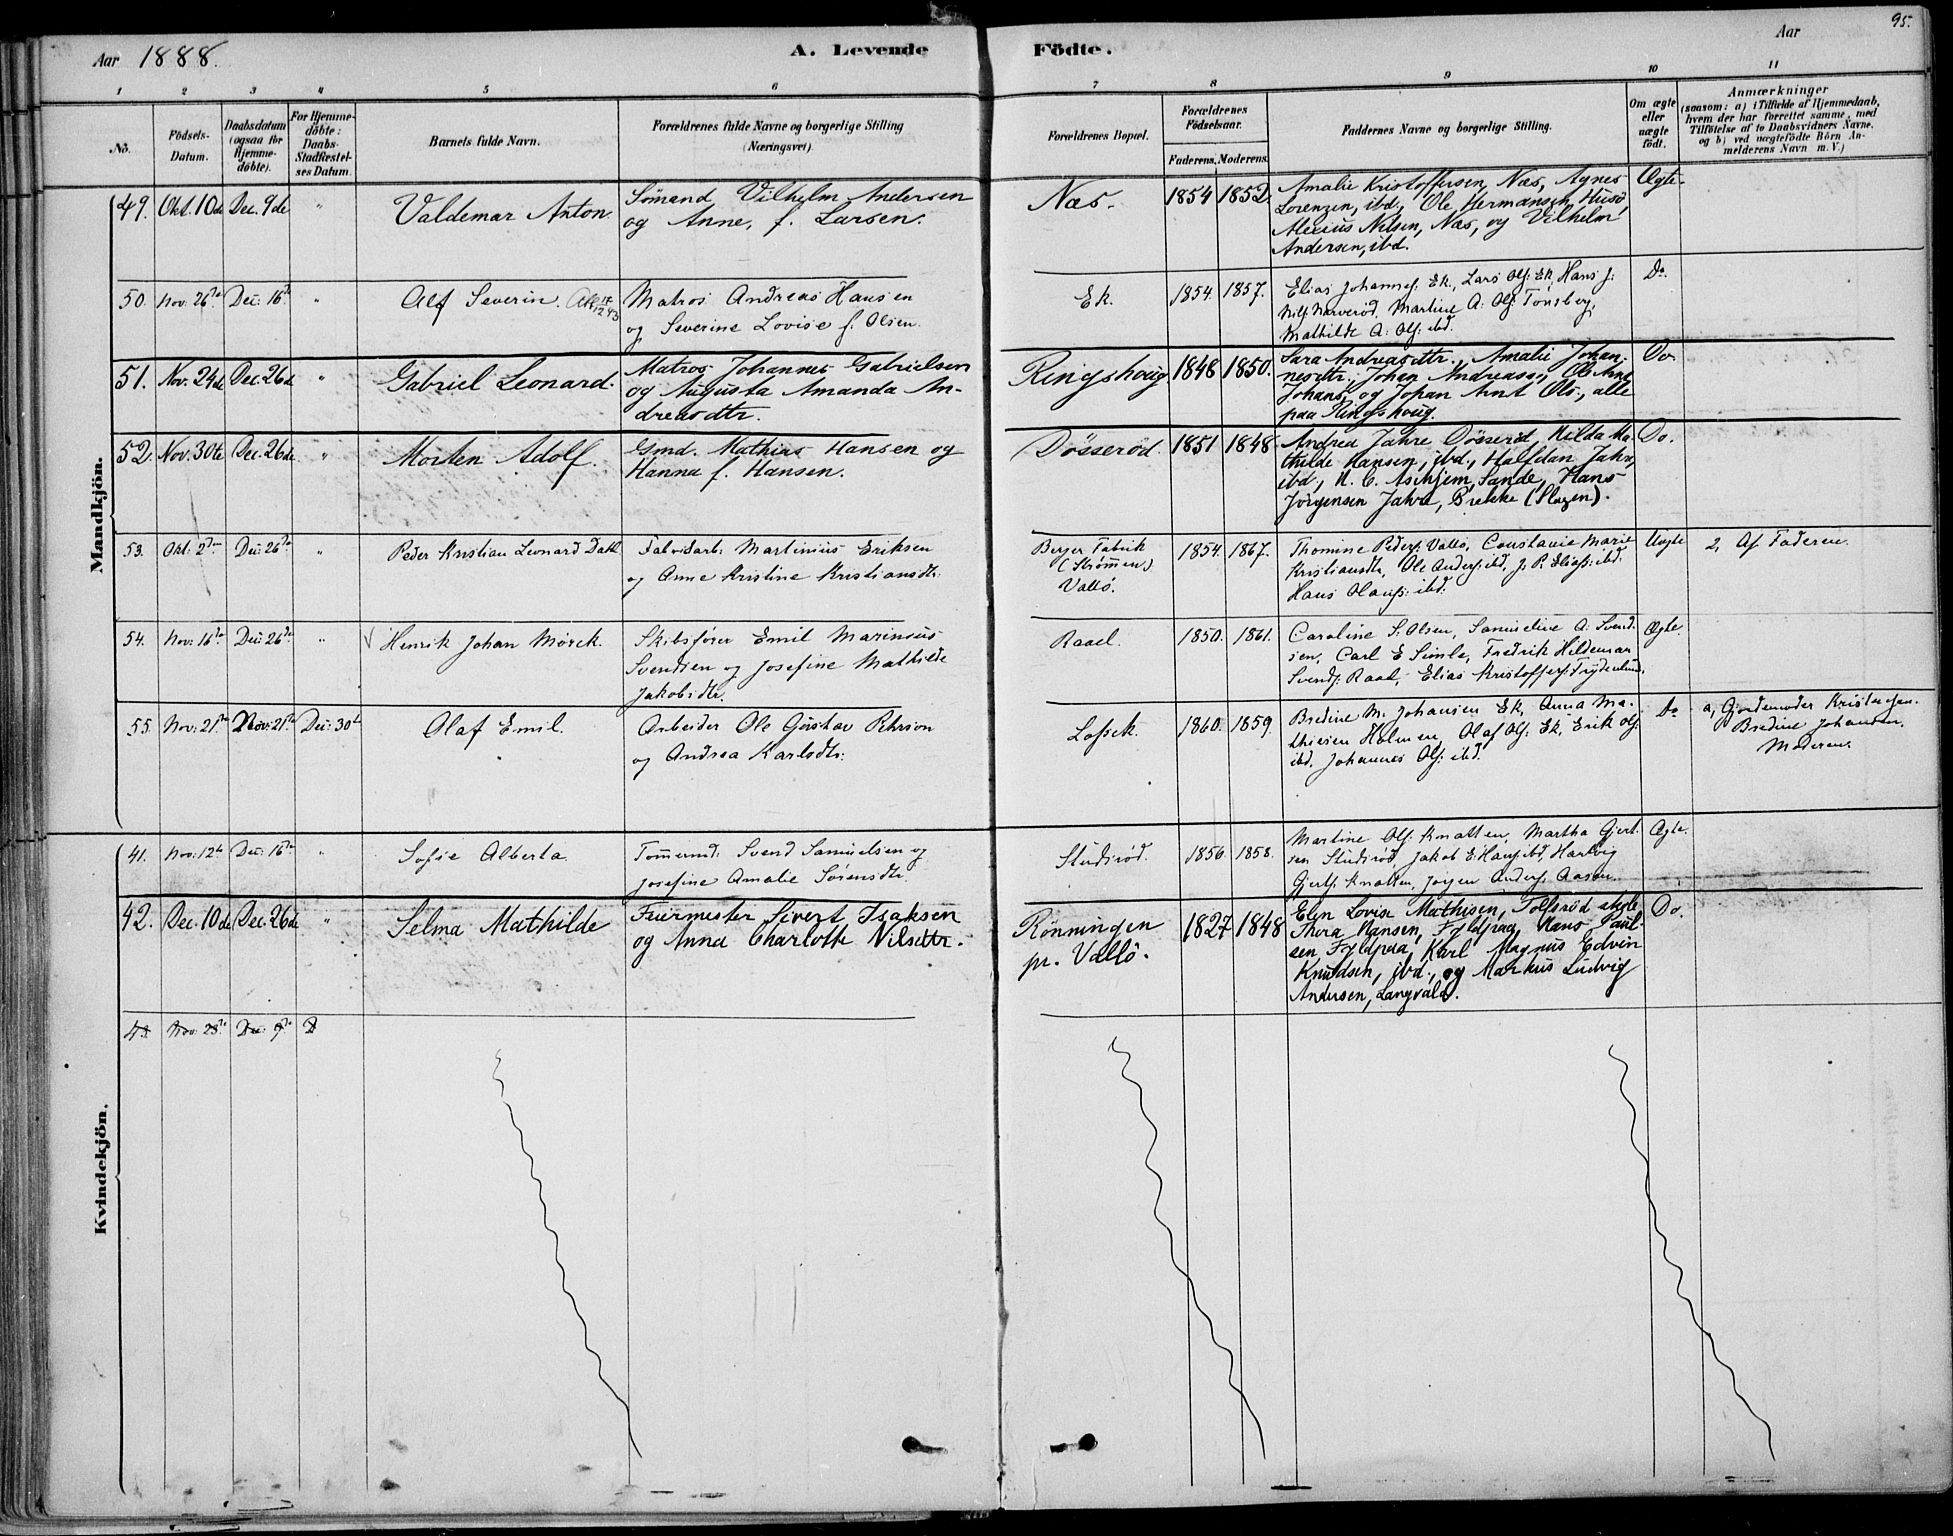 95.
Aar 1888.
A. Levende Födte.
Aar
1 2 3 4 5 6 7 8 9 10 11
No.
Födsels-
Datum.
Daabsdatum
(ogsaa for
Hjemme-
döbte).
For Hjemme-
döbte:
Daabs-
Stadfæstel-
ses Datum.
Barnets fulde Navn.
Forældrenes fulde Navne og borgerlige Stilling
(Næringsvei).
Forældrenes Bopæl.
Forældrenes
Födselsaar.
Faderens. Moderens.
Faddernes Navne og borgerlige Stilling.
Om ægte
eller
uægte
födt.
Anmærkninger
(saasom: a) i Tilfælde af Hjemmedaab,
hvem der har forrettet samme, med
Tilföielse af to Daabsvidners Navne,
og b) ved uægtefödte Börn An-
melderens Navn m. V.)
Mandkjön.
49. Okt. 10de Dec. 9de "
Valdemar Anton
Sömand Vilhelm Andersen
og Anne, f. Larsen.
Næs.
1854 1852.
Amalie Kristoffersen, Næs, Agnes
Lorenzen, ibd., Ole Hermansen, Husö,
Alexius Nilsen, Næs, og Vilhelm
Andersen, ibd.
Ægte.
50. Nov. 26de Dec: 16de "
Alf Severin.
Matros Andreas Hansen
og Severine Lovise f. Olsen.
Ek.
1854. 1857.
Elias Johannes: Ek, Lars Ols: Ek, Hans J.
Nils: Narverød, Martine A. Ols: Tønsberg,
Mathilde A: Ols: ibd.
Do.
51. Nov. 24de Dec. 26de "
Gabriel Leonard.
Matros Johannes Gabrielsen
og Augusta Amanda An-
dreasdtr.
Ringshoug
1848 1850.
Sara Andreasdtr., Amalie Johan-
nesdtr., Johan Andreass., Ole Arnt
Johans., og Johan Arnt Ols., alle
paa Ringshoug.
Do.
52. Nov. 30te Dec. 26de "
Morten Adolf.
Gmd. Mathias Hansen og
Hanna f. Hansen.
Dösseröd.
1851 1848.
Andrea Jahre Dösseröd, Hilda Ma-
thilde Hansen, ibd., Halfdan Jahre,
ibd., H. C. Askjem, Sande, Hans
Jörgensen Jahre, Brekke (Slagen).
Do.
53. Okt: 2den Dec: 26de "
Peder Kristian Leonard Dahl
Fabrikarb: Martinius Eriksen
og Anne Kristine Kristiansdtr.
Berger Fabrik
(Strømmen)
Vallö.
1854. 1867.
Thomine Peders: Vallö, Constance Marie
Kristiansdtr, Ole Anders: ibd, J. P. Elias: ibd.
Hans Olaus: ibd.
Uægte
2, Af Faderen.
54. Nov: 16de Dec: 26de "
Henrik Johan Mørck.
Skibsfører Emil Marinius
Svendsen og Josefine Mathilde
Jakobsdtr.
Raael.
1850. 1861.
Caroline S. Olsen, Samueline A. Svend-
sen, Carl E Semle, Fredrik Hildemar
Svends: Raael, Elias Kristoffers: Frydenlund.
Ægte.
55. Nov: 21de Nov: 21de Dec: 30te
Olaf Emil.
Arbeider Ole Gustav Petterson
og Andrea Karlsdtr:
1860. 1859.
Bredine M. Johansen Ek, Anna Ma-
thisen Holmen, Olaf Ols: Ek, Erik Ols:
ibd. Johannes Ols: ibd.
Do
a, Gjordemoder
Bredine Johansen,
Moderen.
Kvindekjön.
41. Nov: 12te Dec: 16de "
Sofie Alberta.
Tømmermd: Svend Samuelsen og
Josefine Amalie Sørensdtr.
Studsrød.
1856. 1858.
Martine Ols: Knatten, Martha Gjert-
sen Studsrød, Jakob E. Hans: ibd, Hartvig
Gjerts: Knatten, Jørgen Anders: Aasen.
Ægte.
42. Dec. 10de Dec. 26de "
Selma Mathilde
Fyrmester Sivert Isaksen
og Anna Charlotte Nilsdtr.
Rönningen
pr. Vallö.
1827 1848
Elen Lovise Mathisen, Tolfsröd
Thora Hansen, Fyldpaa, Hans Paul-
sen, Fyldpaa, Karl Magnus Edvin
Knudsen, ibd., og Markus Ludvig
Andersen, Langvald.
Do.
43. Nov. 28de Dec: 9de D